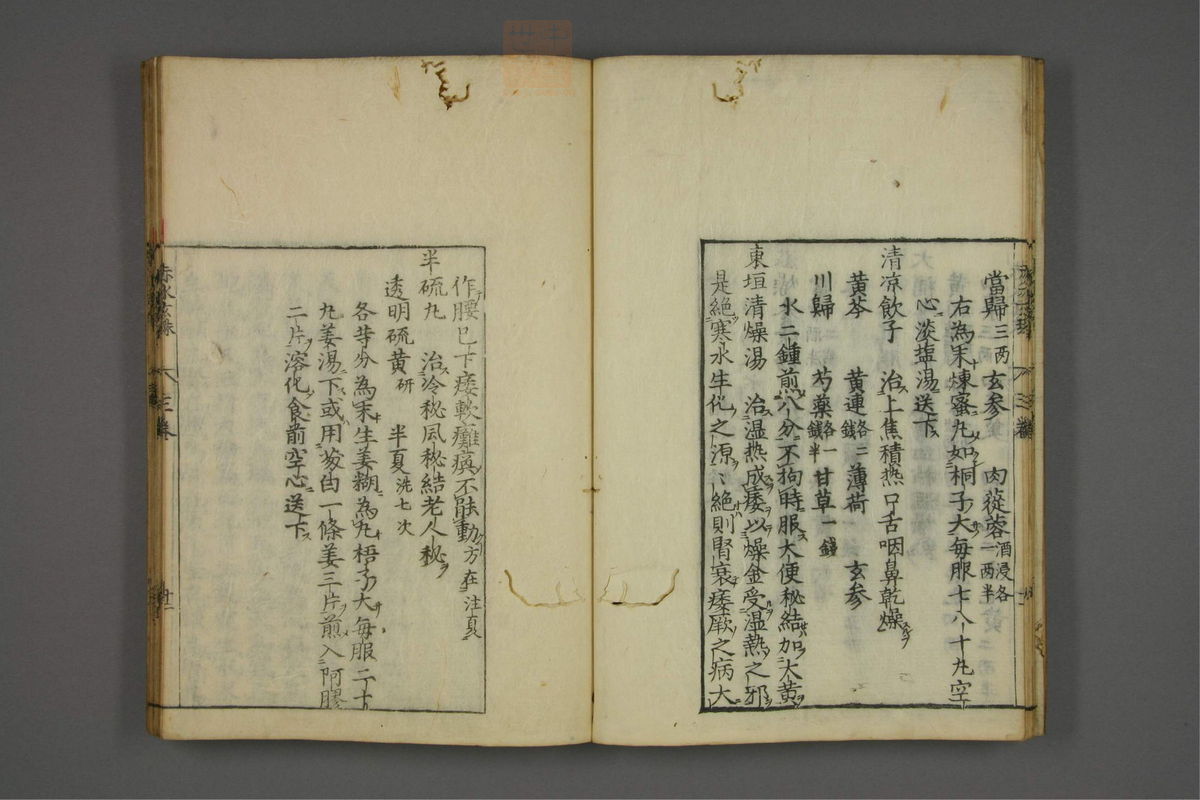 當歸三两 玄参 肉蓯蓉酒浸各一两半
右為末煉蜜丸如桐子大毎服七八十丸空
心淡塩湯送下
清凉飲子 治上焦積热口舌咽鼻乾燥
黄芩 黄連各二錢 薄荷 玄参
川歸 芍薬各一錢半 甘草一錢
水二鍾煎八分不拘時服大便秘結加大黄
東垣清燥湯 治温热成痿以燥金受温熱之邪
是絶寒水生化之源〻絶則腎衰痿厥之病大
作腰已下痿軟癱瘓不能動方在注夏
半硫丸 治冷秘風秘結老人秘
透明硫黄研 半夏洗七次
各等分為末生姜糊為丸梧子大毎服二十
丸姜湯下或用葱白一條姜三片煎入阿膠
二片溶化食前空心送下
赤水玄珠 三巻